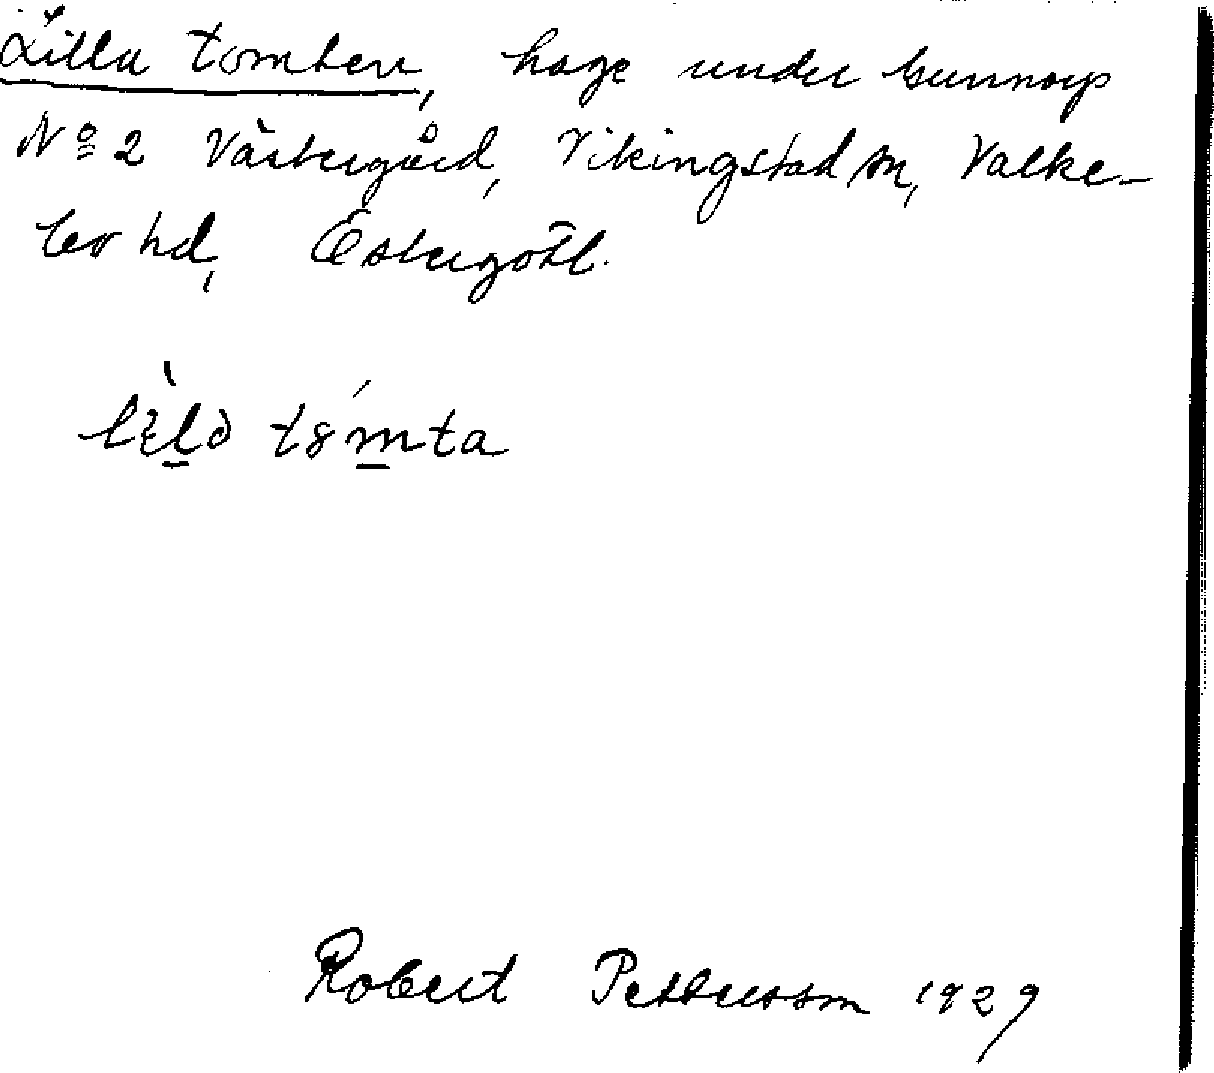 Lilla tomten, hage under Gunnorp
Nº 2 Västergård, Vikingstad sn, Valke-
bo hd, Östergötl.
tomta
Robert Pettersson 1929